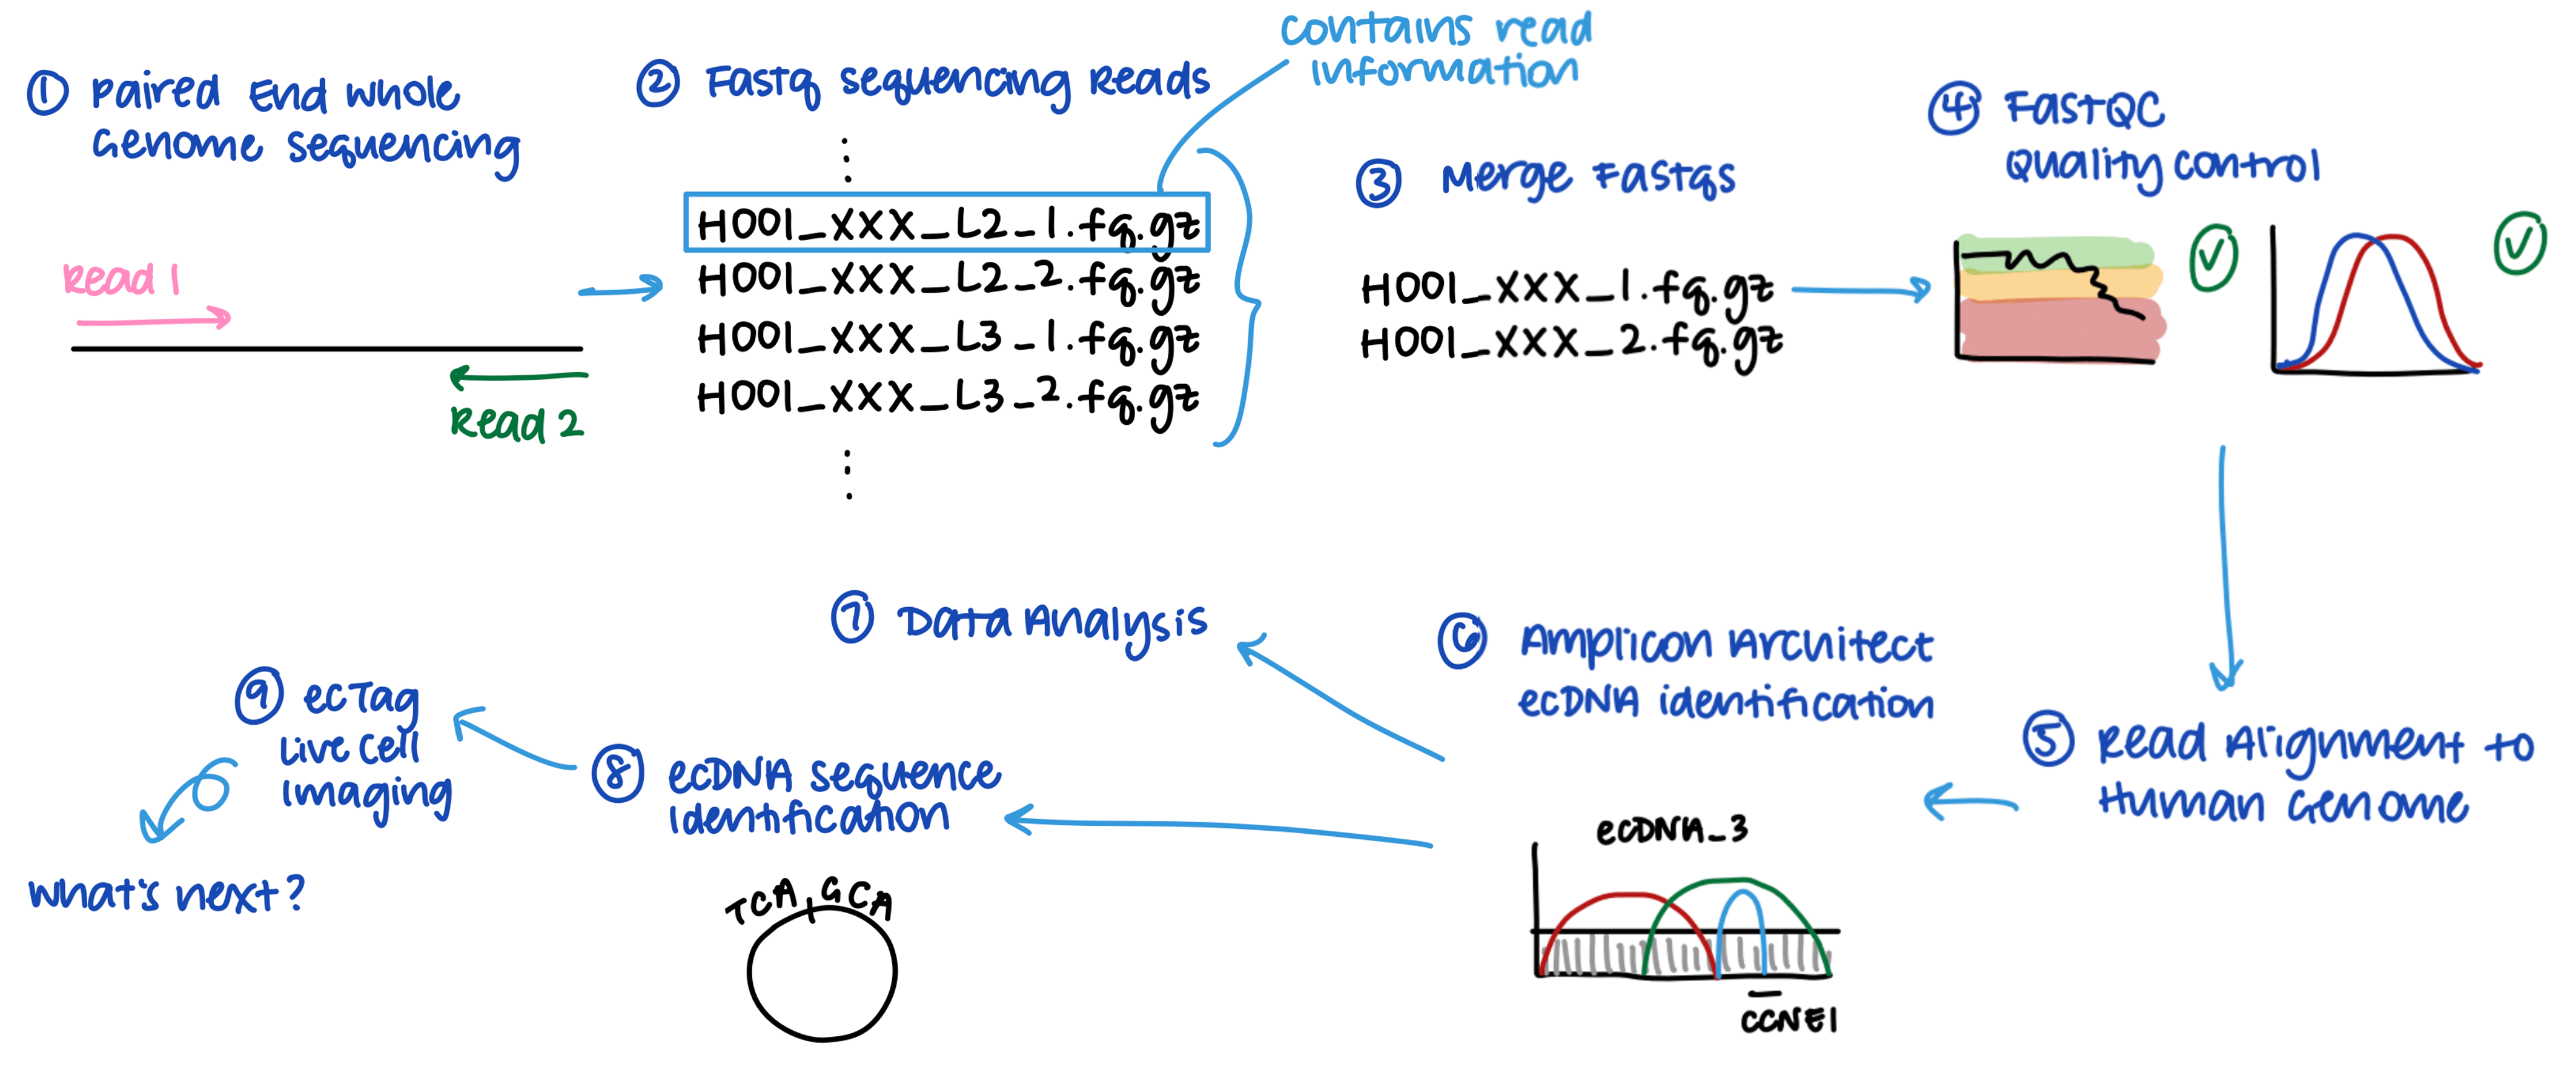 ① Paired End Whole
Genome Sequencing
Read 1
Read 2
② Fastq Sequencing Reads
contains read
information
H001_XXX_L2_1.fq.gz
H001_XXX_L2_2.fq.gz
H001_XXX_L3_1.fq.gz
H001_XXX_L3_2.fq.gz
③ Merge Fastqs
H001_XXX_1.fq.gz
H001_XXX_2.fq.gz
④ FastQC
Quality control
⑤ Read Alignment to
Human Genome
⑥ Amplicon Architect
ecDNA identification
ecDNA_3
CCNE1
⑦ Data Analysis
⑧ ecDNA sequence
Identification
TCA GCA
⑨ ecTag
Live Cell
Imaging
What's next?